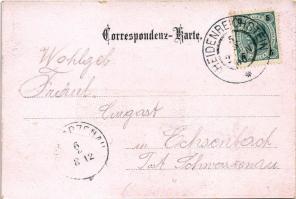 Correspondenz-Karte.
HEIDENREICHSTEIN
5
5
Wohlgeb
Fräulein
in Echsenbach
Post Schwarzenau
6
8 12